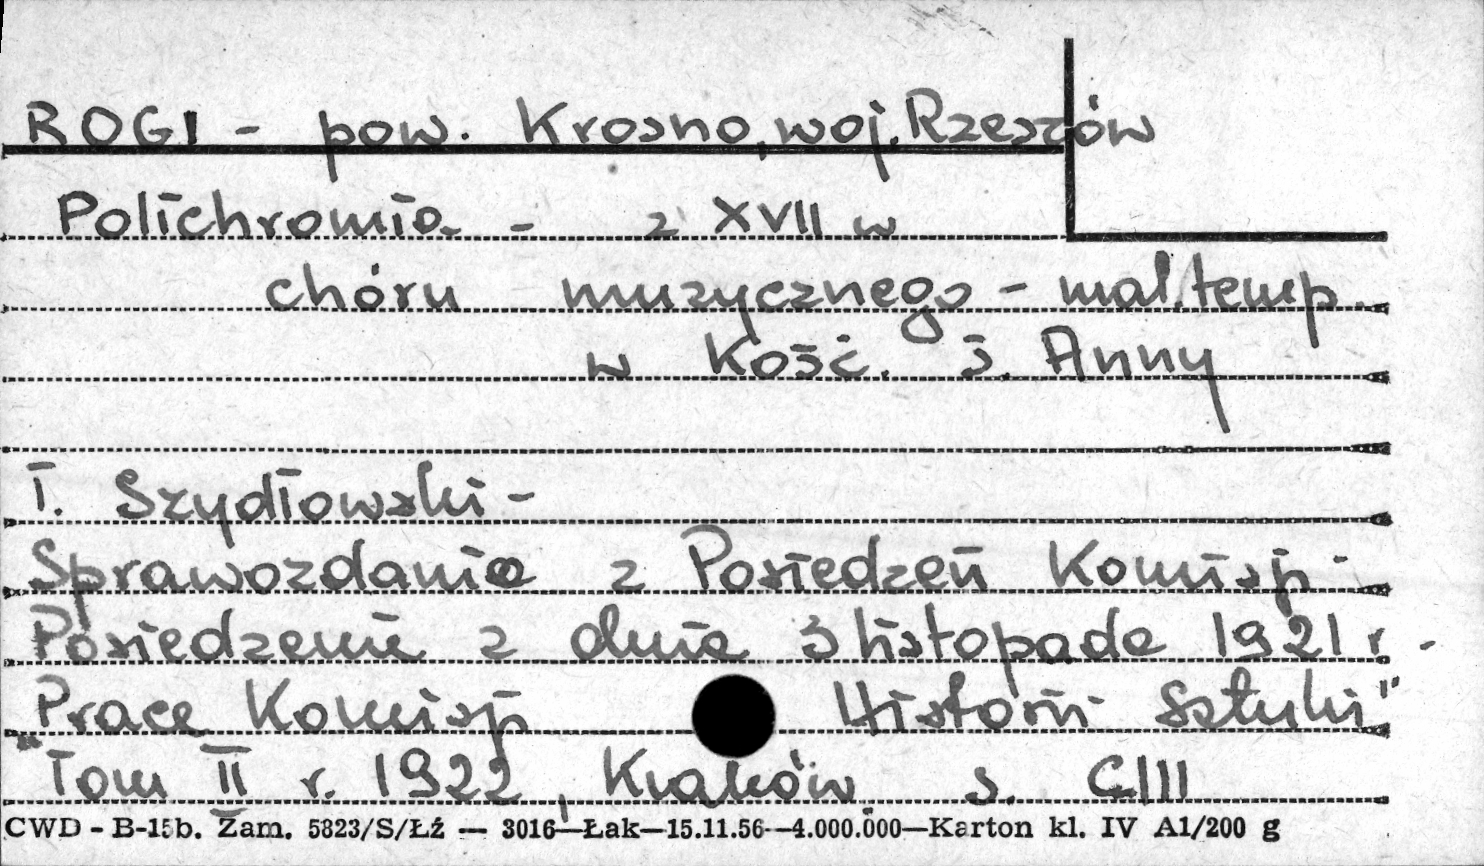 ROGI - pow. Krosno, woj. Rzeszów
Polichromia - z XVII w
chóru muzycznego - mal. temp.
w Kość. ś. Anny
T. Szydłowski -
Sprawozdanie z Posiedzeń Komisji -
Posiedzenie z dnia 3 listopada 1921 r. -
"Prace Komisji Historii Sztuki"
Tom II r. 1922, Kraków. s. CIII
CWD - B-15b. Zam. 5823/S/Łź — 3016—Łak—15.11.56—4.000.000—Karton kl. IV A1/200 g